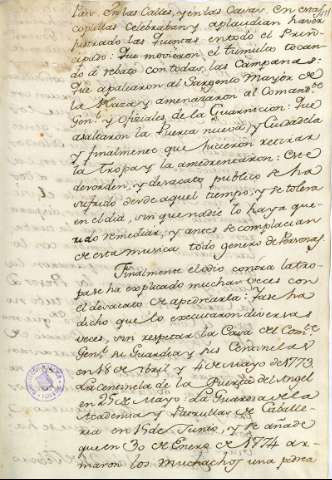 par. En las Calles, y en las Casas en estas
coplillas celebraban y aplaudian haver
frustrado las Quintas en todo el Prin-
cipado: Que movieron el tumulto tocan-
do á rebato con todas las Campanas:
Que apalearon al Sargento Mayor de
la Plaza y amenazaron al Comandte
Genl y Oficiales de la Guarnicion: Que
asaltaron la Puerta nueva, y Ciudadela
y finalmente que hicieron retirar
la tropa y la amedrentaron: Este
desorden, y desacato publico se ha
sufrido desde aquel tiempo, y se tolera
en el dia, sin que nadie lo haya que-
rido remediar, y antes se complacian
de esta musica todo genero de Personas
Finalmente el odio contra la tro-
pa se ha explicado muchas veces con
el desacato de apedrearla: pase ha
dicho que lo executaron diversas
veces, sin respetar la Casa de Comte
Genl su Guardia y sus Centinelas
en 18 de Abril y 4 de Mayo de 1773
La Centinela de la Puerta del Angel
en 25 de Mayo: La Guardia de la
Academia y Patrullas de Caballe-
ria en 15 de Junio, y se añade
que en 30 de Enero de 1774 ar-
maron los muchachos una pedrea